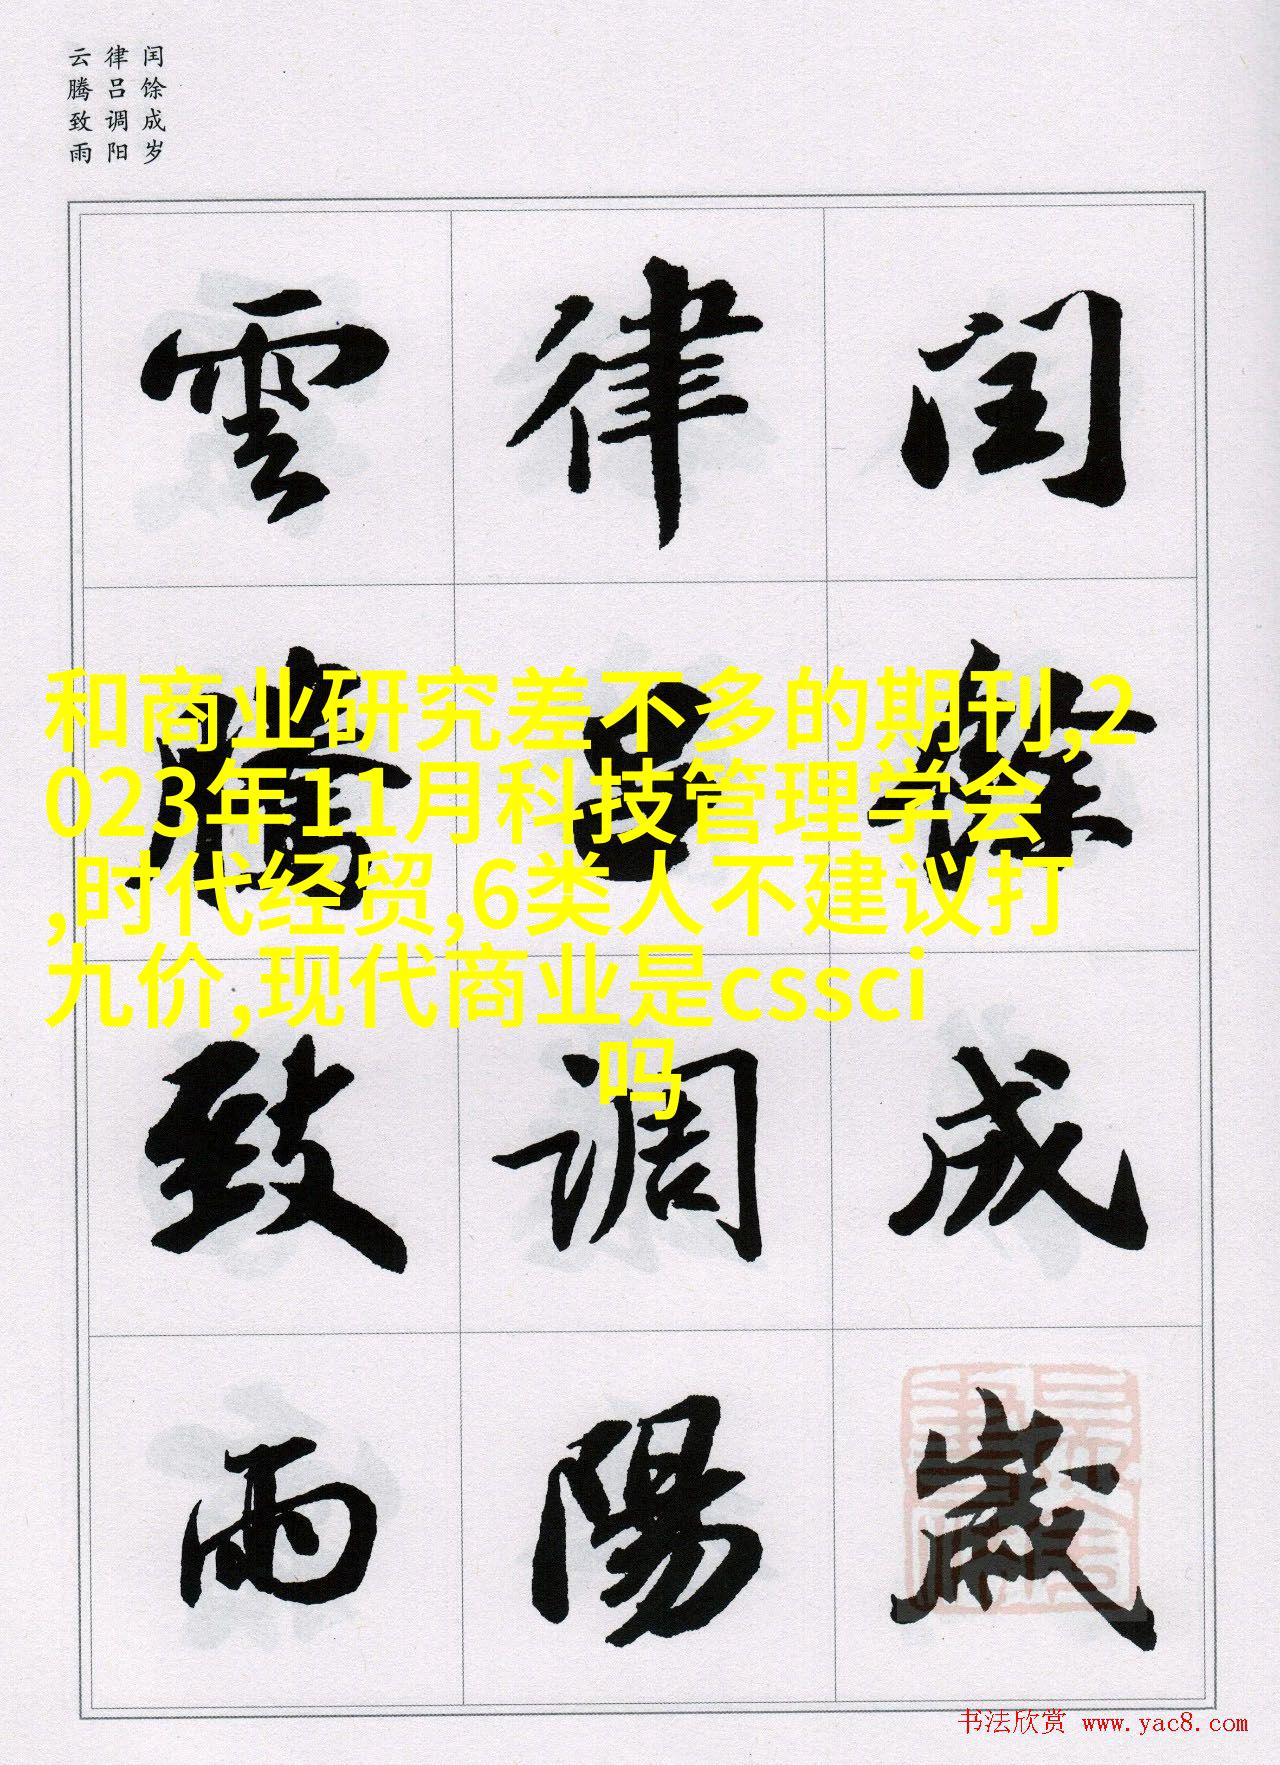 闰馀成岁
律吕调阳
云腾致雨
闰馀成歲
律吕调陽
雲腾致雨
和商业研究差不多的期刊,2
023年11月科技管理学会
,时代经贸,6类人不建议打
九价,现代商业是cssci
吗
书法欣赏 www.yac8.com